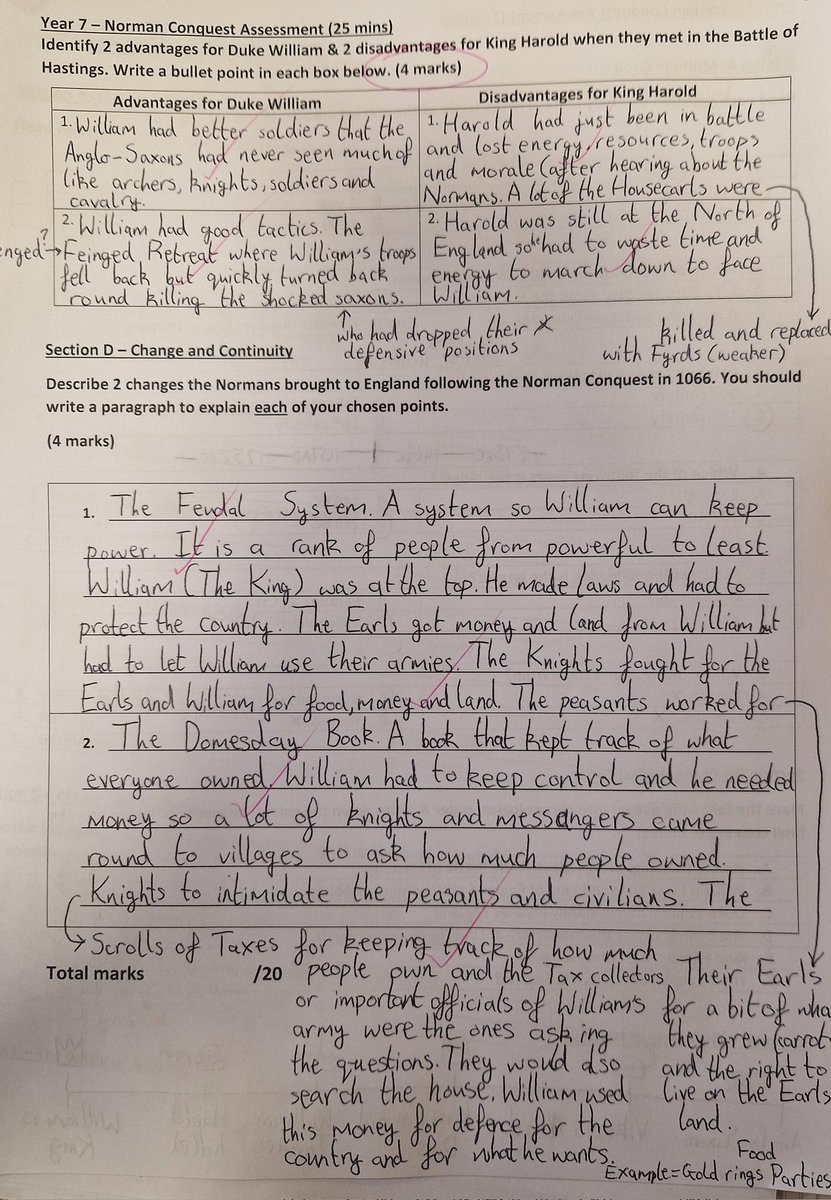 Year 7 – Norman Conquest Assessment (25 mins)
Identify 2 advantages for Duke William & 2 disadvantages for King Harold when they met in the Battle of
Hastings. Write a bullet point in each box below. (4 marks)
Advantages for Duke William
1. William had better soldiers that the
Anglo-Saxons had never seen much of
like archers, knights, soldiers and
cavalry.
2. William had good tactics. The
Feinged Retreat where William's troops
fell back but quickly turned back
round killing the shocked saxons.
?
enged?→
who had dropped their
defensive positions
Disadvantages for King Harold
1. Harold had just been in battle
and lost energy, resources, troops
and morale (after hearing about the
Normans. A lot of the Housecarls were
killed and replaced
with Fyrds (weaker)
2. Harold was still at the North of
England so he had to waste time and
energy to march down to face
William.
Section D – Change and Continuity
Describe 2 changes the Normans brought to England following the Norman Conquest in 1066. You should
write a paragraph to explain each of your chosen points.
(4 marks)
1. The Feudal System. A system so William can keep
power. It is a rank of people from powerful to least.
William (The King) was at the top. He made laws and had to
protect the country. The Earls got money and land from William but
had to let William use their armies. The Knights fought for the
Earls and William for food, money and land. The peasants worked for
Their Earls
for a bit of wha
they grew (carrot
and the right to
live on the Earls
land.
2. The Domesday Book. A book that kept track of what
everyone owned. William had to keep control and he needed
money so a lot of knights and messangers came
round to villages to ask how much people owned.
Knights to intimidate the peasants and civilians. The
Scrolls of Taxes for keeping track of how much
people own and the Tax collectors
or important officials of William's
army were the ones asking
the questions. They would also
search the house. William used
this money for defence for the
country and for what he wants.
Food
Example=Gold rings Parties
Total marks /20